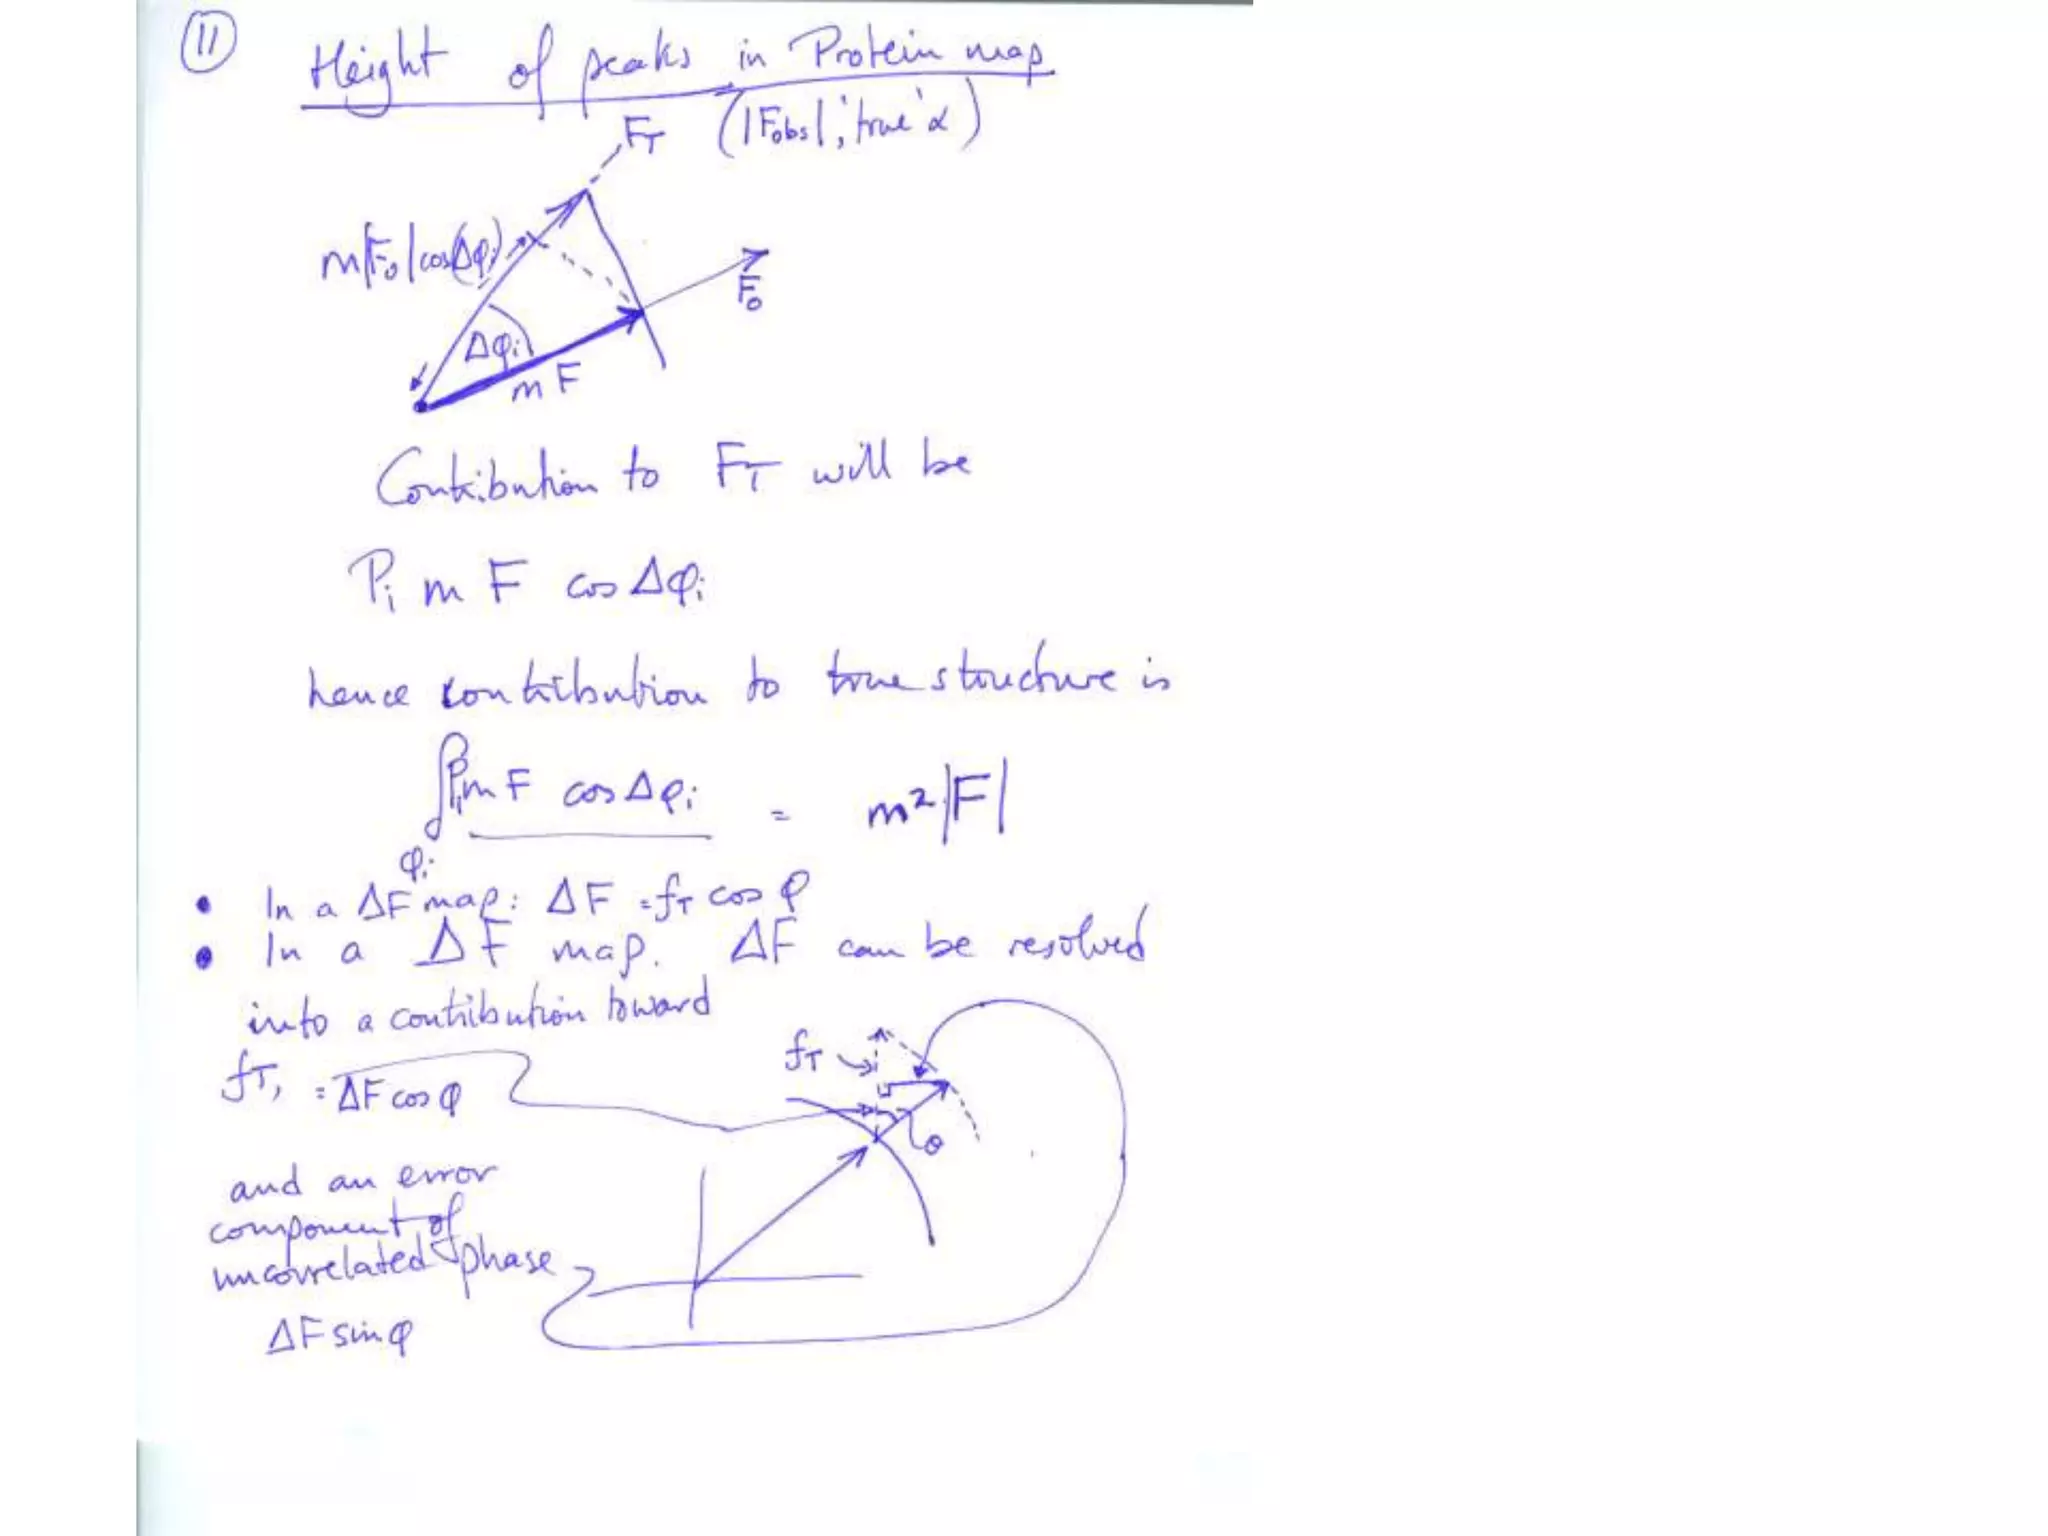 11
Height of peaks in Protein map
FT (|Fobs|, 'true' α)
m|Fo|cos(Δφi)
Fo
Δφi
m F
Contribution to FT will be
Pi m F cos Δφi
hence contribution to true structure is
∫Pi m F cos Δφi = m²|F|
φi
• In a ΔF map: ΔF = fT cos φ
• In a ΔF map. ΔF can be resolved
into a contribution toward
fT, = ΔF cos φ
fT
θ
and an error
component of
uncorrelated phase
ΔF sin φ